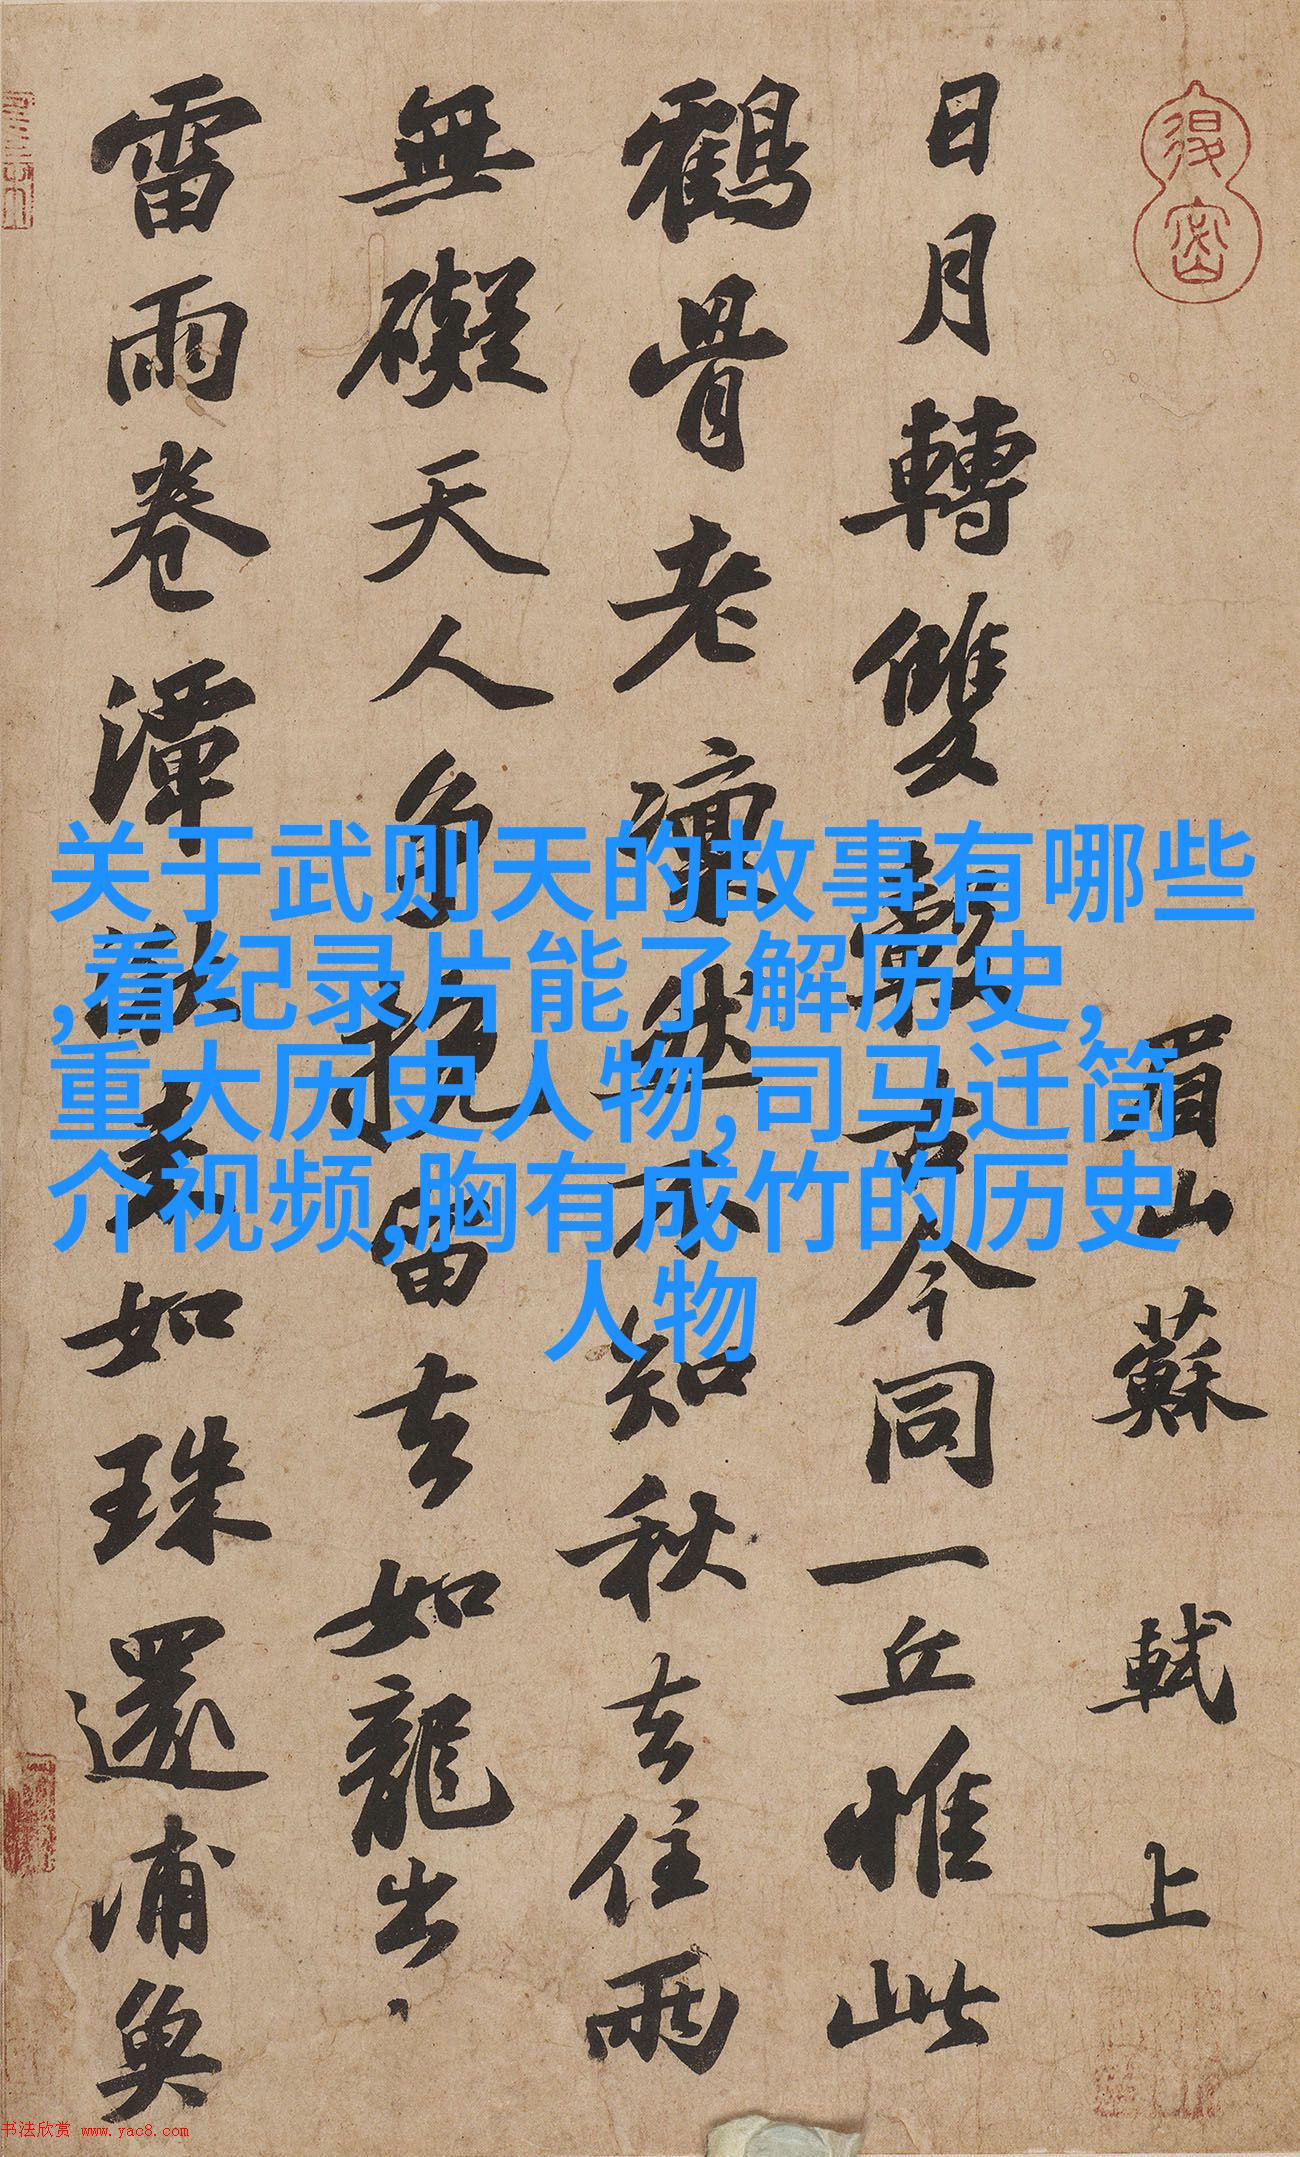 眉山蘇軾上
日月轉雙轂古今同一丘惟此
鶴骨老凜然不知秋去住兩
無礙天人爭挽留去如龍出
雷雨卷潭湫來如珠還浦魚
关于武则天的故事有哪些
,看纪录片能了解历史,
重大历史人物,司马迁简
介视频,胸有成竹的历史
人物
书法欣赏 www.yac8.com